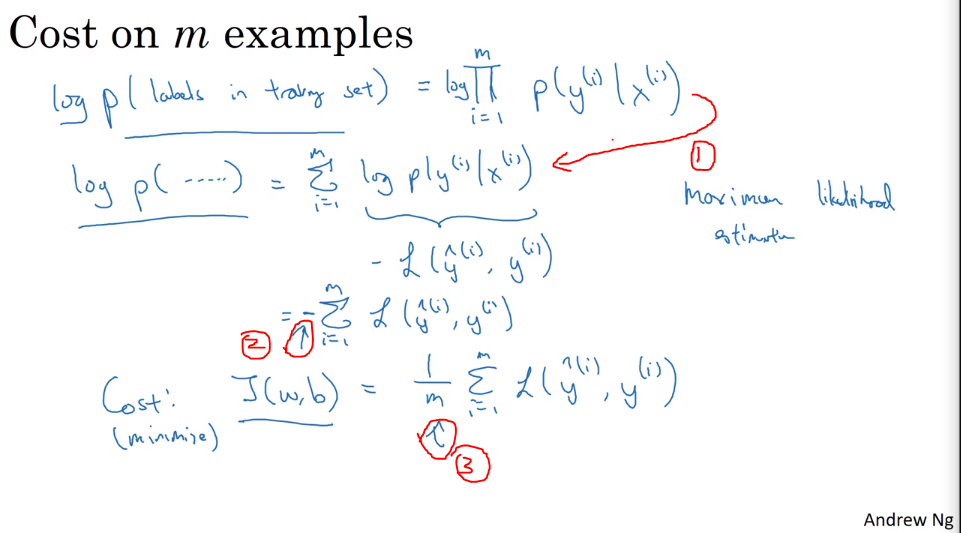 Cost on m examples
log p( labels in training set ) = log ∏_{i=1}^{m} p(y^{(i)} | x^{(i)})
①
log p( ..... ) = ∑_{i=1}^{m} log p(y^{(i)} | x^{(i)})
Maximum likelihood
estimation
- ℒ(ŷ^{(i)}, y^{(i)})
= - ∑_{i=1}^{m} ℒ(ŷ^{(i)}, y^{(i)})
② ↑
Cost: J(w,b) = 1/m ∑_{i=1}^{m} ℒ(ŷ^{(i)}, y^{(i)})
(minimize) ↑
③
Andrew Ng